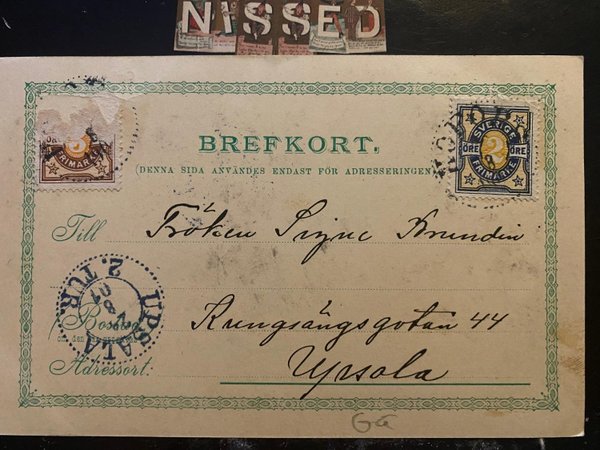 NISSED
BREFKORT.
(DENNA SIDA ANVÄNDES ENDAST FÖR ADRESSERINGEN)
ÖRE
3
FRIMÄRKE
SVERIGE
ÖRE 2 ÖRE
FRIMÄRKE
Till Fröken Signe Brundin
UPSALA
2. TUR.
8
01
Bostad Kungsängsgatan 44
Adressort: Upsala